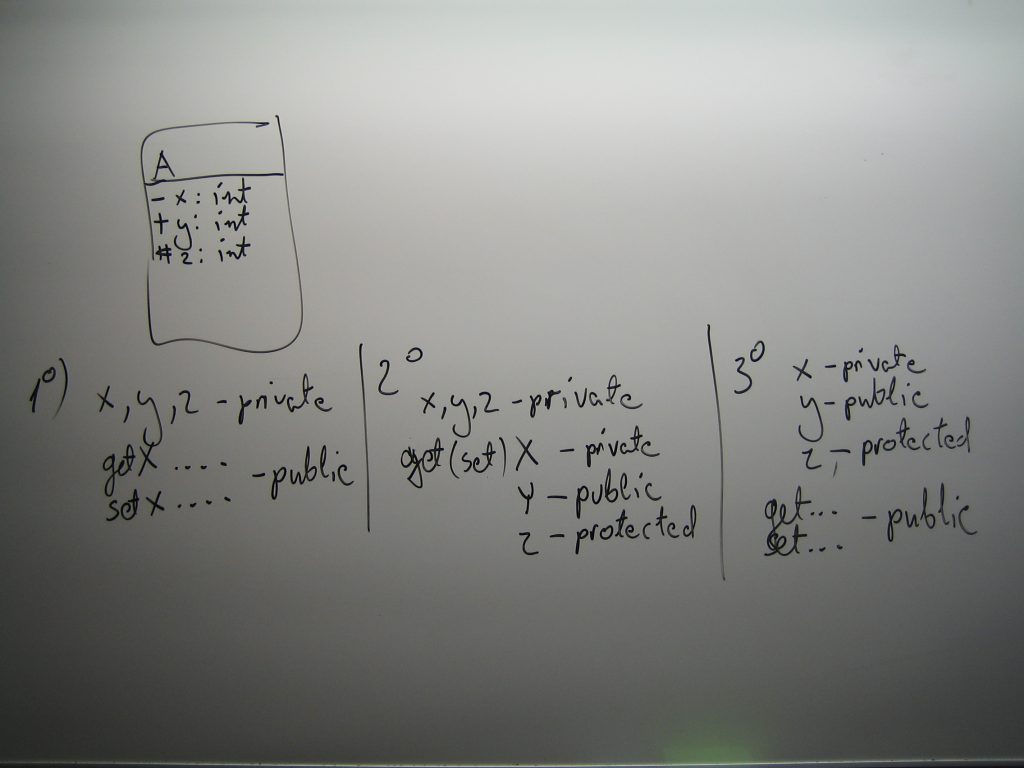 A
- x: int
+ y: int
# z: int
1°)
x, y, z - private
getX ....
setX ....
- public
2°
x, y, z - private
get (set) X - private
Y - public
z - protected
3°
x - private
y - public
z - protected
get...
set...
- public